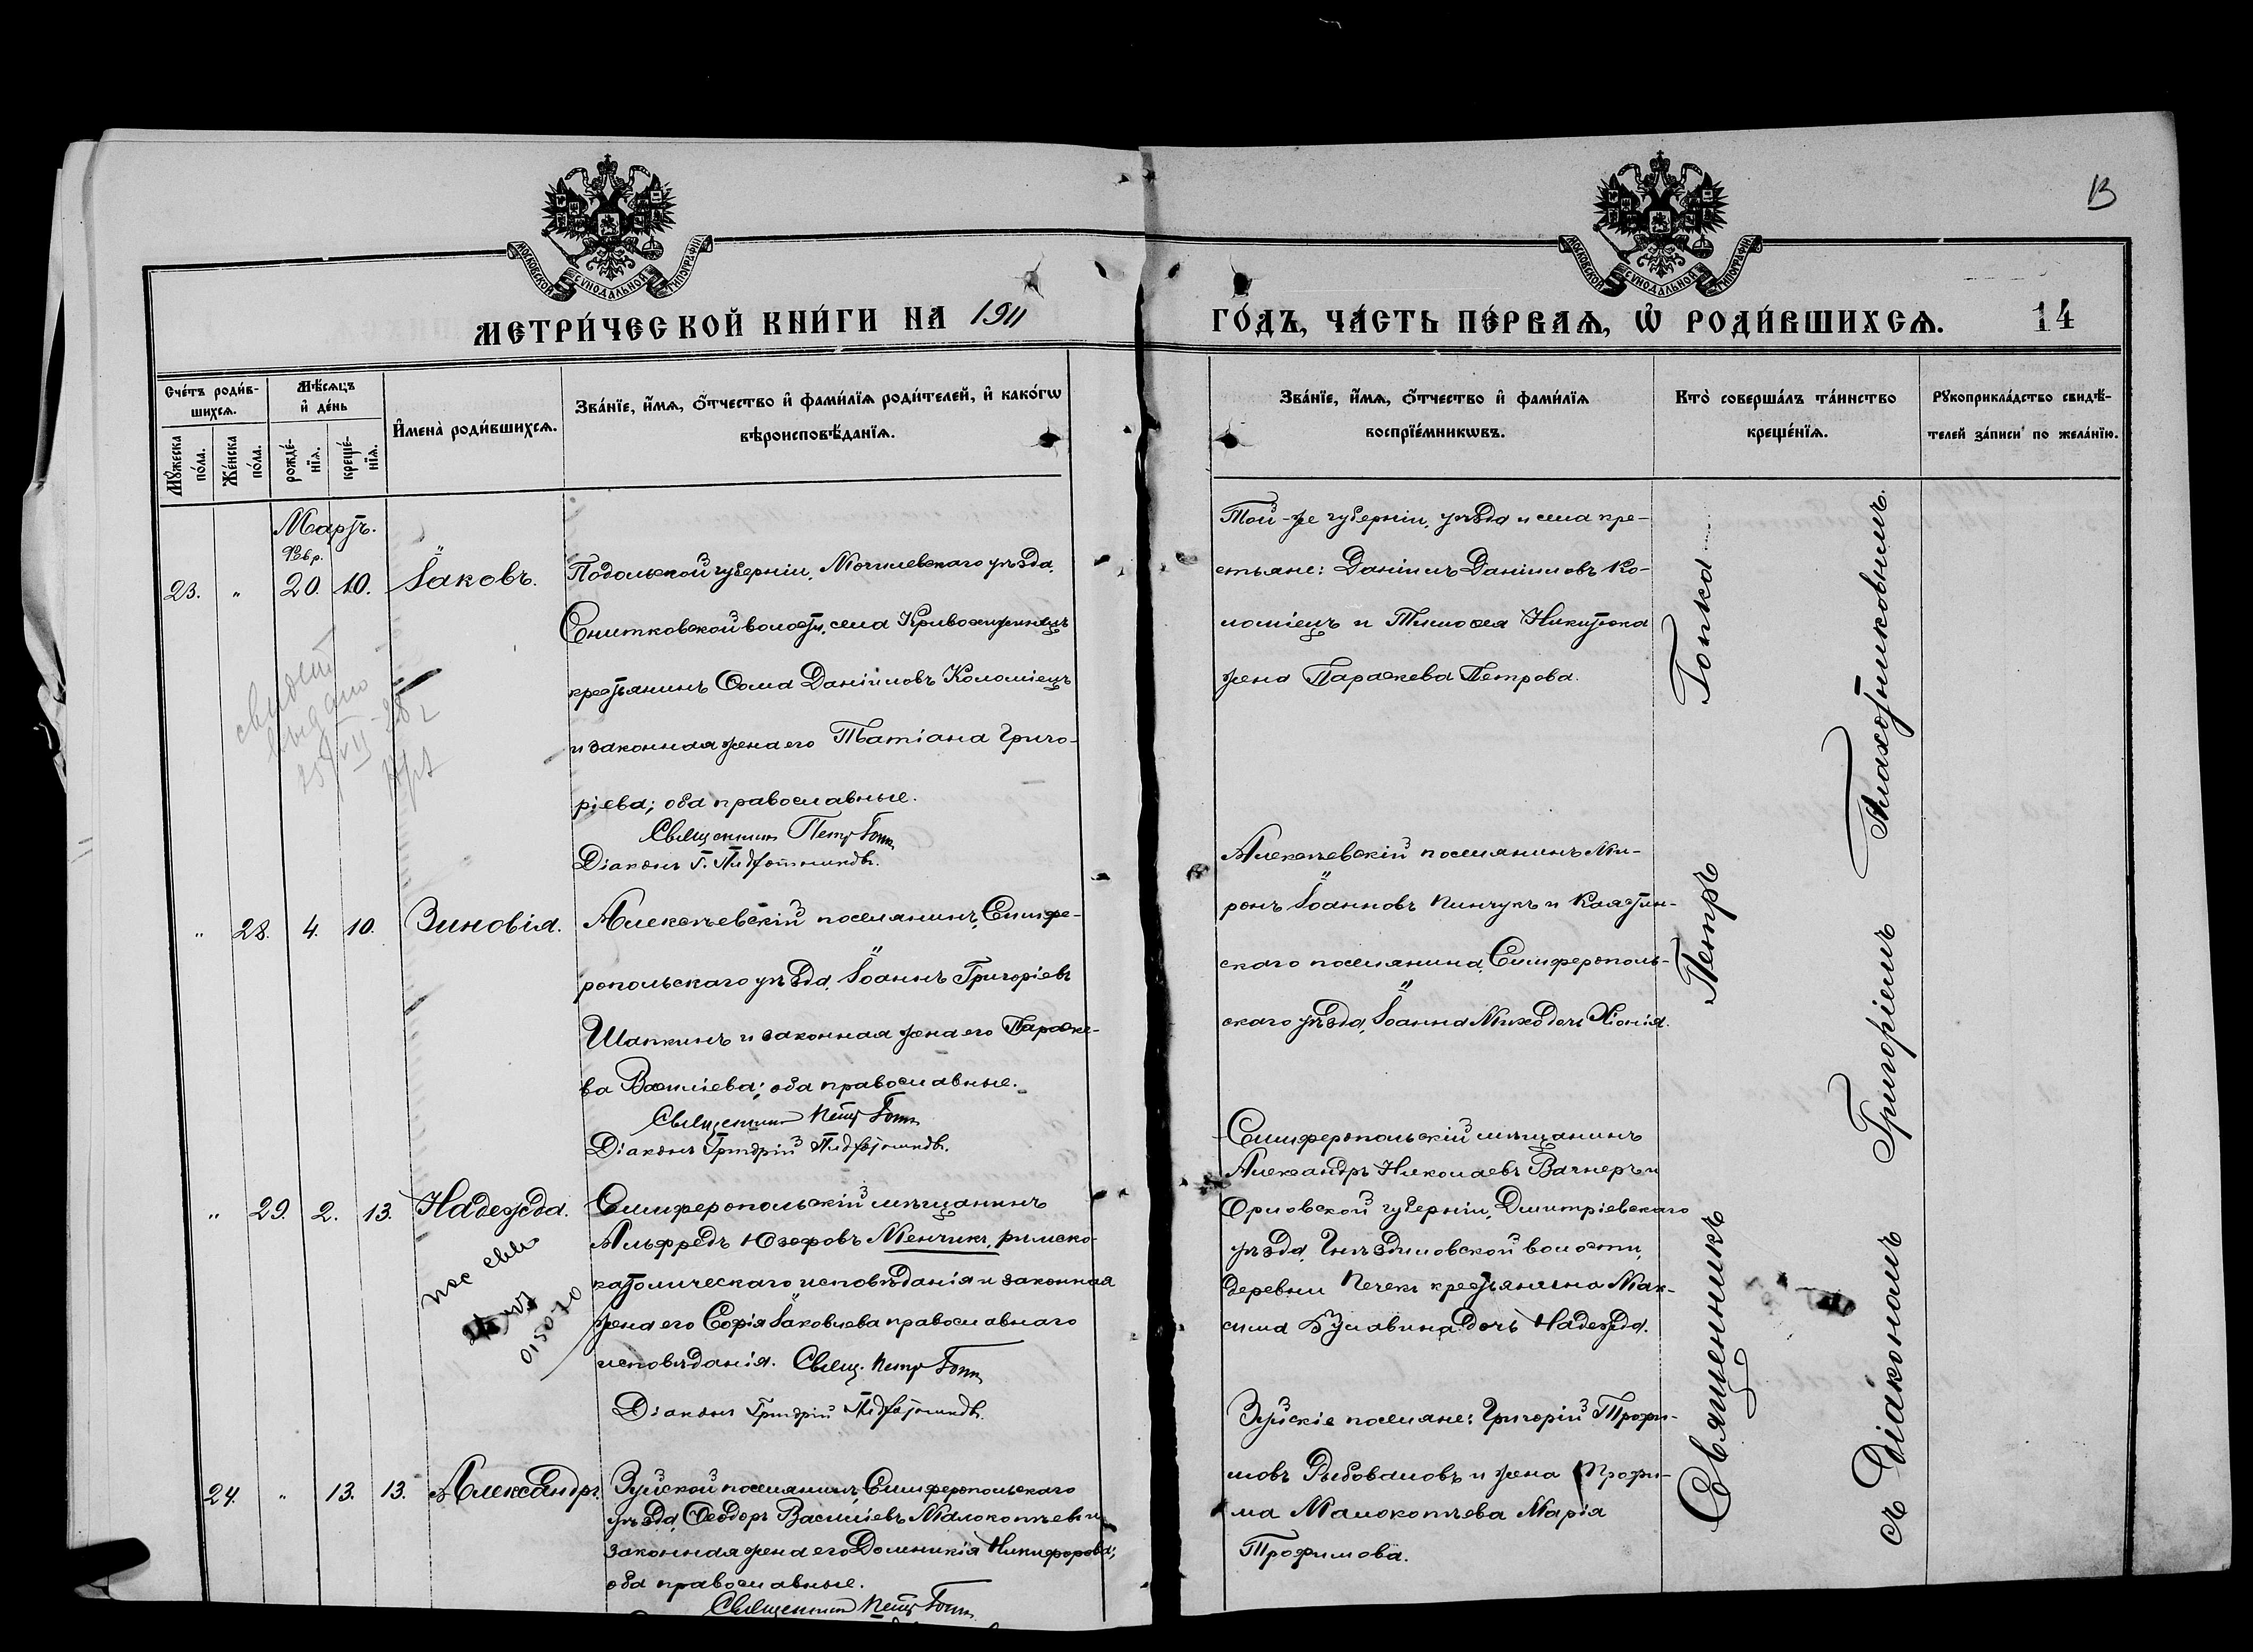 13
МОСКОВСКОЙ СѴНОДАЛЬНОЙ ТИПОГРАФІИ
МОСКОВСКОЙ СѴНОДАЛЬНОЙ ТИПОГРАФІИ
МЕТРИ́ЧЕСКОЙ КНИ́ГИ НА 1911
ГО́ДЪ, ЧА́СТЬ ПЕ́РВАѦ, Ѡ РОДИ́ВШИХСѦ. 14
Сче́тъ роди́в-
шихсѧ.
Мꙋ́жеска
по́ла.
Же́нска
по́ла.
Мѣ́сѧцъ
и҆ де́нь
рожде́-
нїѧ.
креще́-
нїѧ.
И҆мена̀ роди́вшихсѧ.
Зва́нїе, и҆́мѧ, ѻ҆́тчество и҆ фами́лїѧ роди́телей, и҆ како́гѡ
вѣроисповѣ́данїѧ.
Зва́нїе, и҆́мѧ, ѻ҆́тчество и҆ фами́лїѧ
воспрїе́мникѡвъ.
Кто̀ соверша́лъ та́инство
креще́нїѧ.
Рꙋкоприкла́дство свидѣ́-
телей за́писи по жела́нїю.
Мартъ.
Февр.
23. " 20. 10. Іаковъ.
Подольской губерніи, Могилевскаго уѣзда,
Снитковской волости, села Кривохижинецъ
крестьянинъ Ѳома Даніиловъ Коломіецъ
и законная жена его Татіана Григо-
ріева; оба православные.
Священникъ Петръ Гопка
Діаконъ Г. Плахотниковъ.
Той-же губерніи, уѣзда и села кре-
стьяне: Даніилъ Даніиловъ Ко-
ломіецъ и Тимоѳея Никитюка
жена Параскева Петрова.
свидет
выдано
" 28. 4. 10. Зиновія.
Алексѣевскій поселянинъ, Симфе-
ропольскаго уѣзда, Іоаннъ Григоріевъ
Шапкинъ и законная жена его Параске-
ва Василіева; оба православные.
Священникъ Петръ Гопка
Діаконъ Григорій Плахотниковъ.
Алексѣевскій поселянинъ Ми-
ронъ Іоанновъ Пинчукъ и Каястин-
скаго поселянина, Симферополь-
скаго уѣзда, Іоанна Михо дочь Хіонія.
" 29. 2. 13. Надежда.
Симферопольскій мѣщанинъ
Альфредъ Юзефовъ Менчикъ, римско-
католическаго исповѣданія и законная
жена его Софія Іаковлева православнаго
исповѣданія. Свящ. Петръ Гопка
Діаконъ Григорій Плахотниковъ.
Симферопольскій мѣщанинъ
Александръ Николаевъ Вагнеръ и
Орловской губерніи, Дмитріевскаго
уѣзда, Гнѣздиловской волости,
деревни Печекъ крестьянина Мак-
сима Булавина дочь Надежда.
015070
24. " 13. 13. Александръ.
Зуйской поселянинъ, Симферопольскаго
уѣзда, Ѳеодоръ Василіевъ Малокотѣевъ и
законная жена его Домникія Никифорова;
оба православные.
Священникъ Петръ Гопка
Зуйскіе поселяне: Григорій Трофи-
мовъ Рыбоваловъ и жена Трофи-
ма Малокотѣева Марія
Трофимова.
Священникъ Петръ Гопка
съ Діакономъ Григоріемъ Плахотниковымъ.